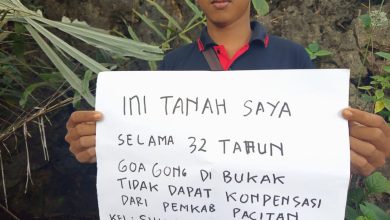 INI TANAH SAYA
SELAMA 32 TAHUN
GOA GONG DI BUKAK
TIDAK DAPAT KONPENSASI
DARI PEMKAB PACITAN